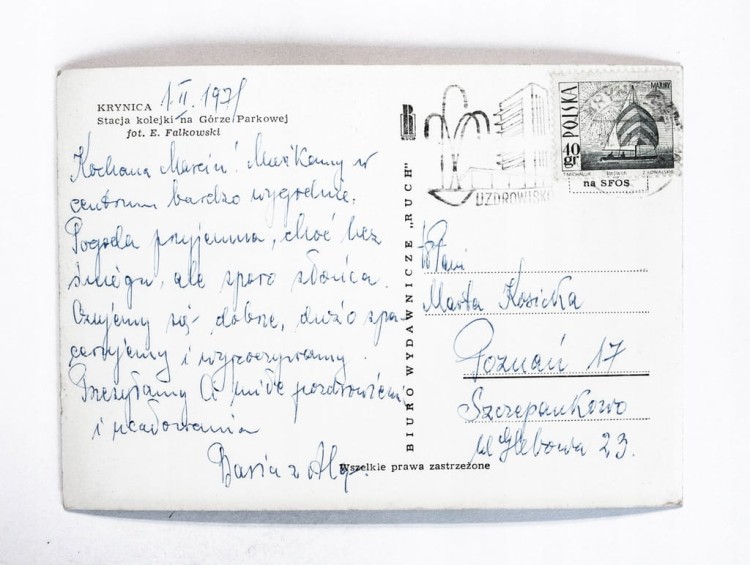 KRYNICA 1.II.1971
Stacja kolejki na Górze Parkowej
fot. E. Falkowski
Kochana Marciu! Mieszkamy w
centrum bardzo wygodnie.
Pogoda przyjemna, choć bez
śniegu, ale sporo słońca.
Czujemy się dobrze, dużo spa-
cerujemy i wypoczywamy.
Przesyłamy Ci miłe pozdrowienia
i ucałowania
Basia z
Wszelkie prawa zastrzeżone
BIURO WYDAWNICZE „RUCH"
UZDROWISKO
POLSKA
40 gr
MAZURY
na SFOS
Pani
Marta Kosicka
Poznań 17
Szczepankowo
ul Glebowa 23.